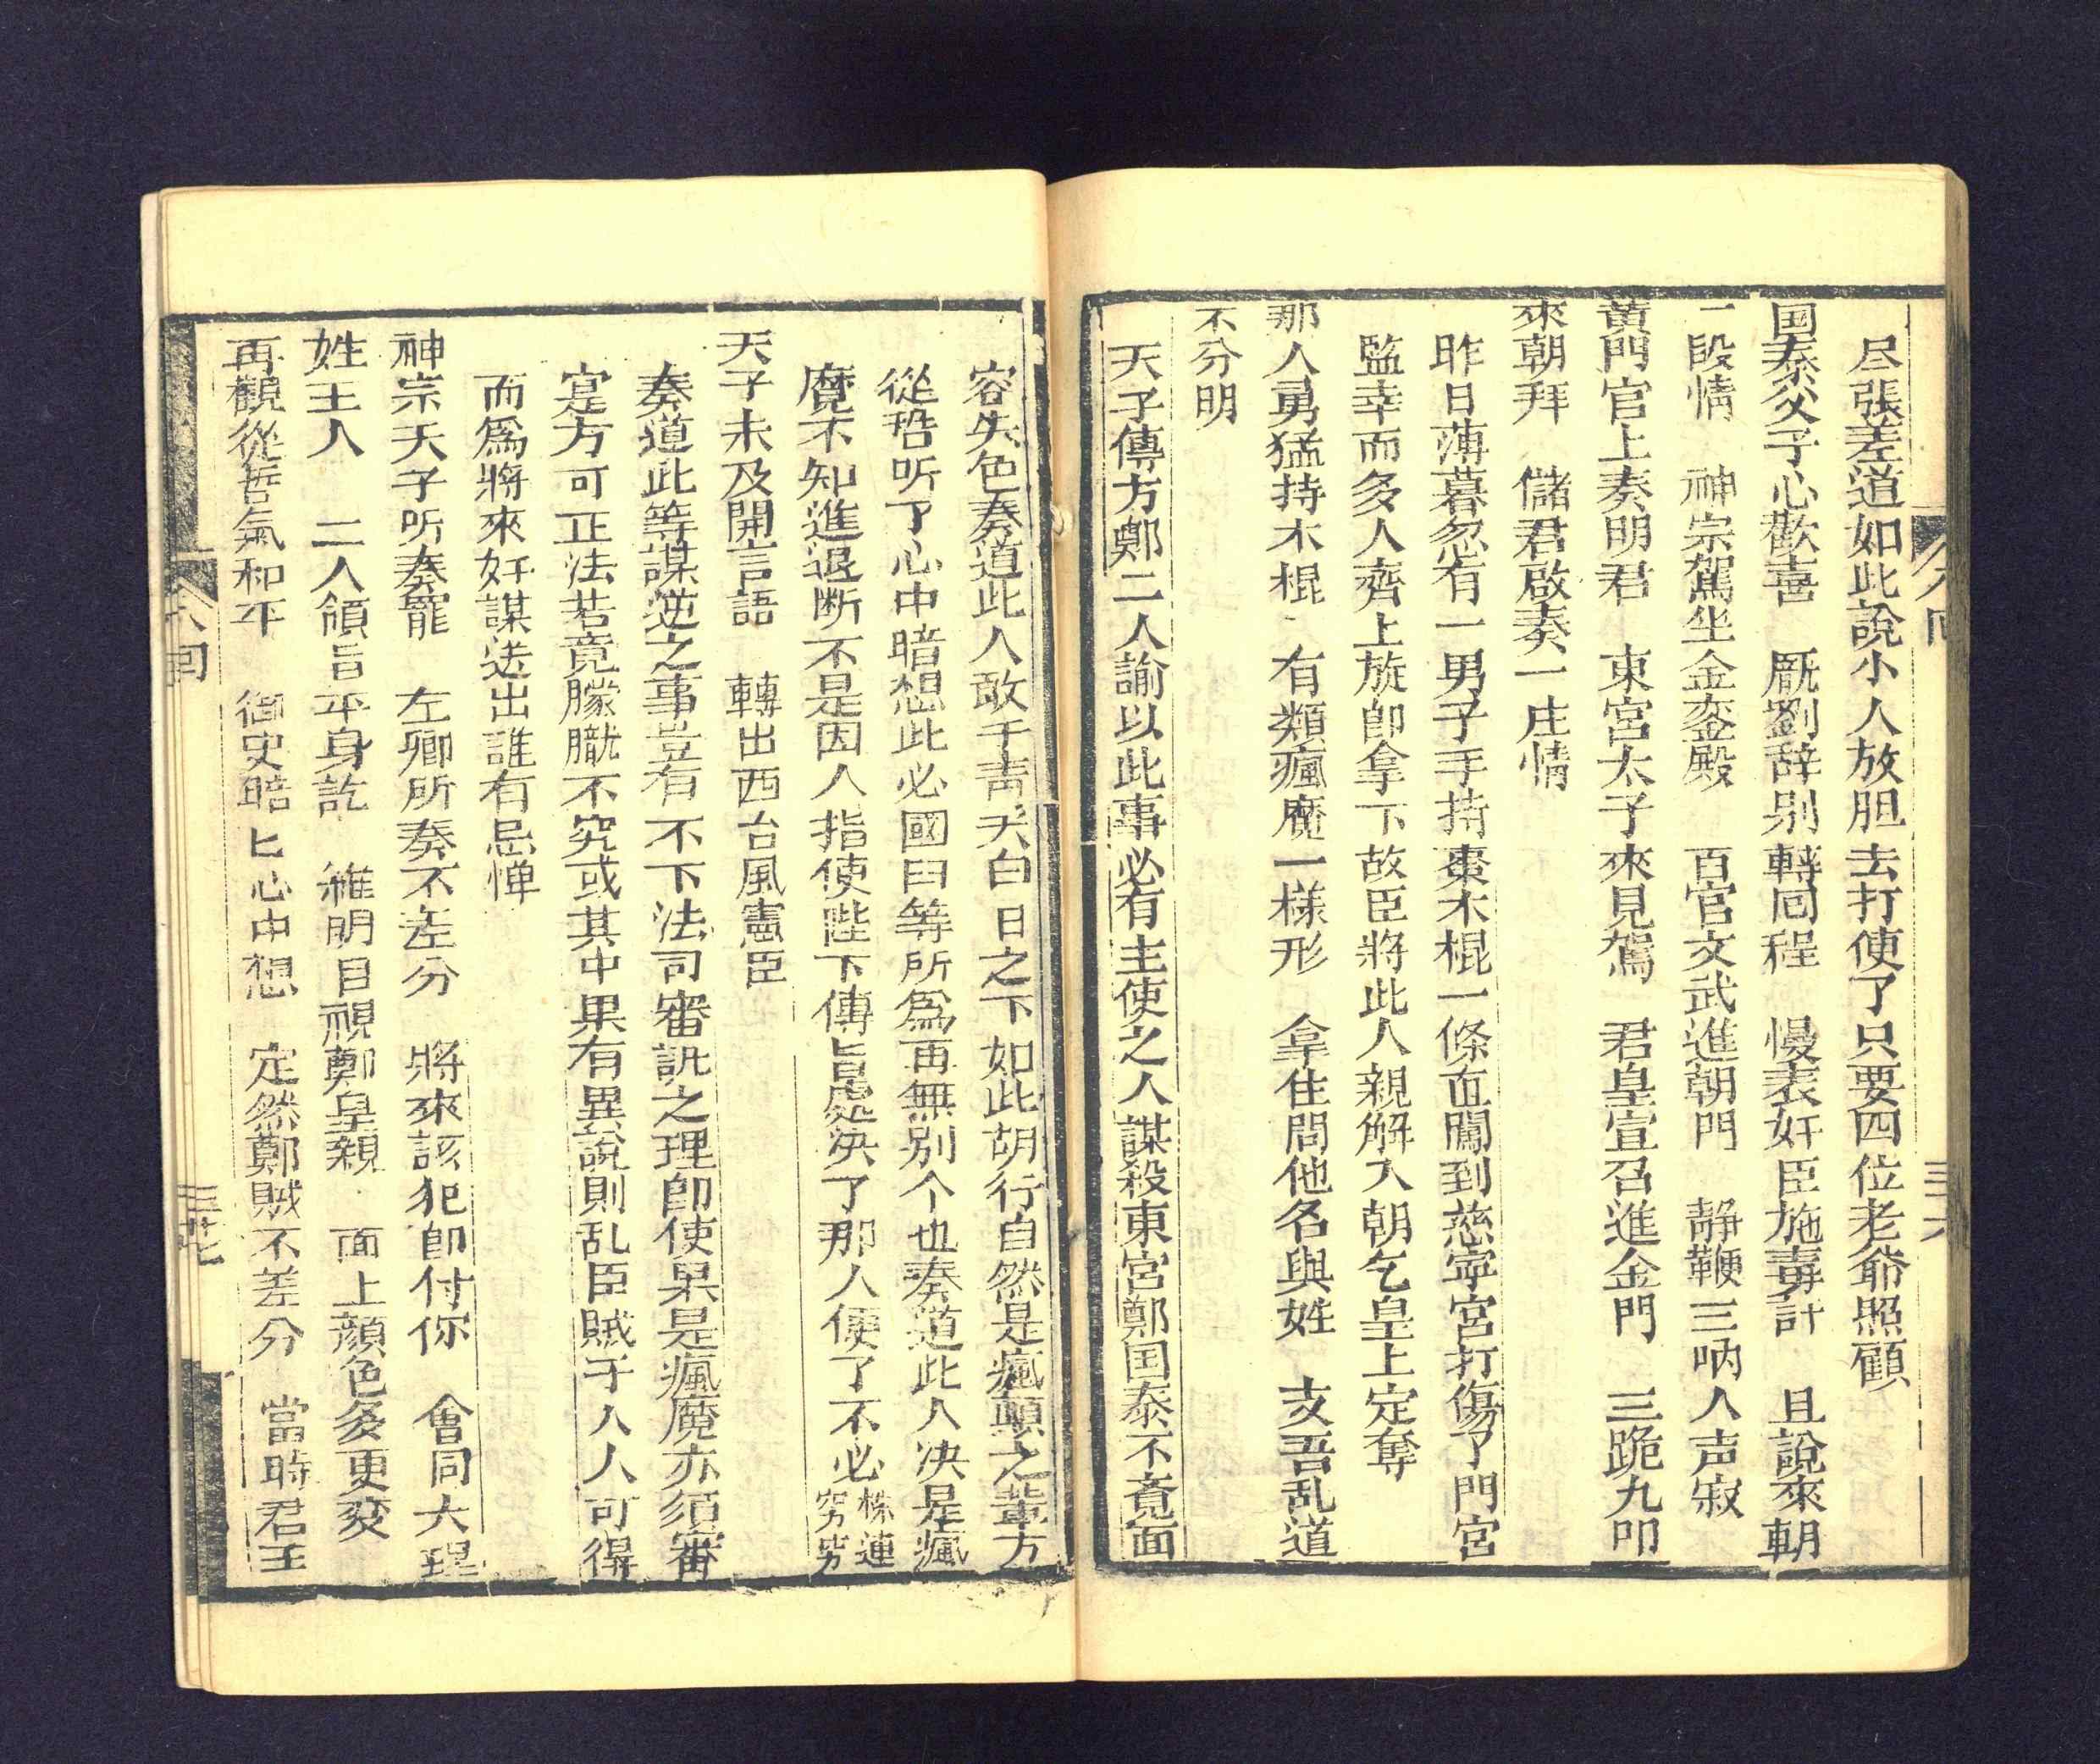 尽張差道如此說小人放胆去打使了只要四位老爺照顧
国泰父子心歡喜　厩劉辞别轉囘程　慢表奸臣施毒計　且說來朝
一段情　神宗駕坐金鑾殿　百官文武進朝門　靜鞭三吶人声寂
黃門官上奏明君　東宮太子來見駕　君皇宣召進金門　三跪九叩
來朝拜　儲君啟奏一庄情
昨日薄暮忽有一男子手持棗木棍一條直闖到慈寜宮打傷了門宮
監幸而多人齊上旋即拿下故臣將此人親解入朝乞皇上定奪
那人勇猛持木棍　有類瘋魔一樣形　拿住問他名與姓　支吾乱道
不分明
天子傳方鄭二人諭以此事必有主使之人謀殺東宮鄭国泰不竟面
八回
三十六
容失色奏道此人敢于青天白日之下如此胡行自然是瘋顛之輩方
從哲听了心中暗想此必國曰等所爲再無别个也奏道此人决是瘋
魔不知進退断不是因人指使陛下傳旨處决了那人便了不必株連
窮究
天子未及開言語　轉出西台風憲臣
奏道此等謀逆之事豈有不下法司審訊之理卽使果是瘋魔亦須審
寔方可正法若竟朦朧不究或其中果有異說則乱臣賊子人人可得
而爲將來奸謀迭出誰有忌憚
神宗天子听奏罷　左卿所奏不差分　將來該犯卽付你　會同大理
姓王人　二人領旨平身訖　維明目視鄭皇親　面上顔色多更变
再觀從哲氣和平　御史暗匕心中想　定然鄭賊不差分　當時君王
八回
三十七